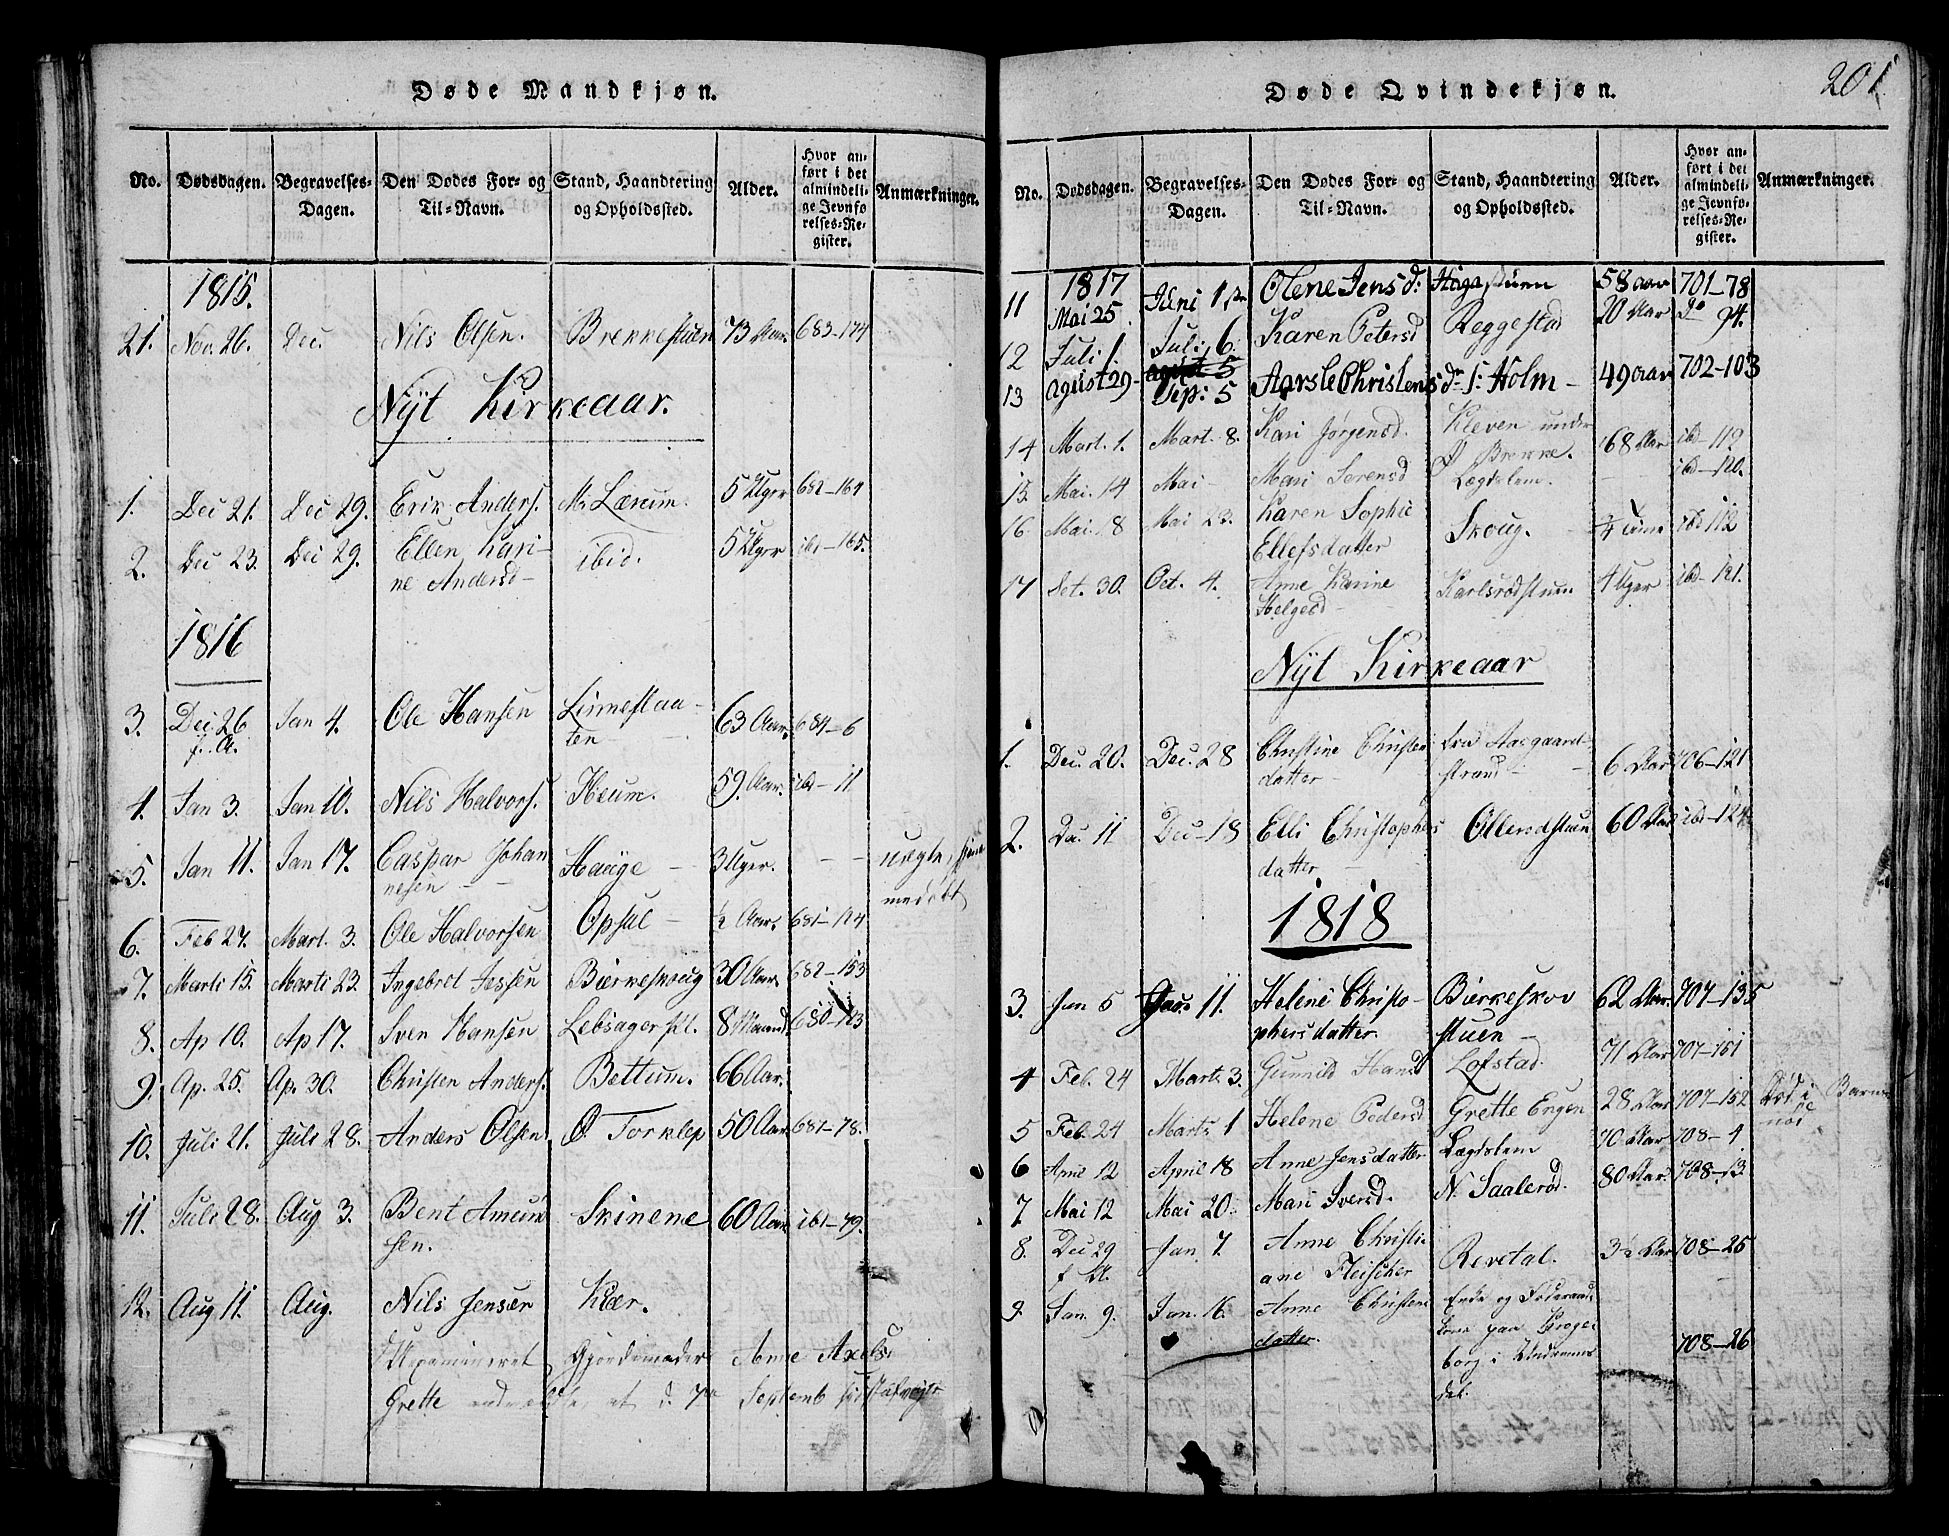 Døde Mandkjøn.
No. Dødsdagen. Begravelses-Dagen. Den Dødes For- og Til-Navn. Stand, Haandtering og Opholdssted. Alder. Hvor anført i det almindelige Jevnførelses-Register. Anmærkninger.
1815.
21. Nov. 26. Dec. Nils Olsen. Brekkestuen 73 Aar. 683-174
Nyt Kirkeaar.
1. Dec 21. Dec 29. Erik Anders. Lærum. 5 Uger 682-164
2. Dec 23. Dec 29. Ellen Kari- ibid. 5 Uger ibd-165.
ne Andersd-
1816
3. Dec. 26 Jan 4. Ole Hansen Linnestaa- 63 Aar. 684-6
f. A. ten
4. Jan 3. Jan 10. Nils Halvors. Heum. 59. Aar. ibd-11
5. Jan 11. Jan 17. Caspar Johan Hauge - 3 Uger. - - uægte,
nesen - - medøbt
6. Feb 27. Mart. 3. Ole Halvorsen Opsal - ½ Aar. 681-124
7. Marti 15. Marti 23. Ingebret Jessen Bierkeskoug 30 Aar. 682-153
8. Ap 10. Ap 17. Sven Hansen Lebsager pl. 8 Maand 680-123
9. Ap. 25. Ap. 30. Christen Anders. Bettum. 66 Aar.
10. Juli 21. Juli 28. Anders Olsen Ø. Torklep 50 Aar. 687-78.
11. Juli 28. Aug 3. Bent Amund Skinene 60 Aar ibd-79.
sen.
12. Aug 11. Aug. Nils Jensen Kiær.
Gjordemoder Anne Axels.
Grette at d. 7de Septemb
Døde Qvindekjøn.
201
No. Dødsdagen. Begravelses-Dagen. Den Dødes For- og Til-Navn. Stand, Haandtering og Opholdssted. Alder. Hvor anført i det almindelige Jevnførelses-Register. Anmærkninger.
1817
11 Mai 25 Juni 1 Olene Jens d: Hagastuen 58 aar 701-78
12 Juli 1. Juli 6. Karen Petersd Reggestad 20 Aar do 94.
13 agust 29- agust 5 Sep: 5 Aarsle Christens dr. Holm - 49 aar 702-103
14 Mart. 1. Mart. 8. Kari Jørgensd. Kleven under 68 Aar ibd-119
Ø Brekke.
15 Mai. 14 Mai - Mari Sørensd Lægdelem. - ibd-120.
16 Mai. 18 Mai 23. Karen Sophie Skoug. - ibd 112
Ellefsdatter
17 Set. 30. Oct. 4. Anne Karine Karlsrødstuen 4 Uger ibd-121.
Helgesd -
Nyt Kirkeaar
1. Dec. 20. Dec. 28 Christine Christen fra Aasgaard- 6 Aar 706-121
datter - strand -
2. Dec. 11 Dec-18 Elli Christophers Ollerødstuen 60 Aar ibd-124
datter -
1818
3. Jan 5 Jan. 11. Helene Christo- Bierkeskov 62 Aar. 707-135
phersdatter. stuen -
4 Feb. 24 Marts 3. Gunnild Hansd Lofstad. 71 Aar 707-151
5 Feb. 24 Marts 1 Helene Pedersd Grette Engen 28 Aar 707-152 Død i Barns
nød
6 April 12 April 18 Anne Jensdatter Lægdelem 70 Aar 708-4
7 Mai 12 Mai 20. Mari Iversd. N. Saalerød. 80 Aar. 708-13.
8. Dec 29 Jan 7. Anne Christi Revetal. 3½ Aar 708-25
f A. ane Fleischer
9 Jan. 9. Jan. 16. Anne Christens Enke og Føderaads
datter. kone paa 708-26
borg i Undrums
dal.